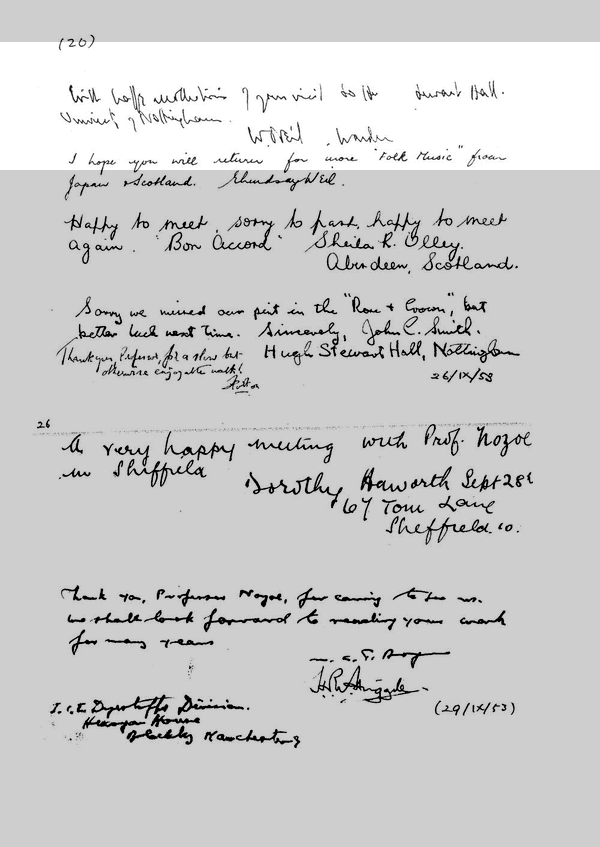 (20)
With happy recollections of your visit to the Stewart Hall.
University of Nottingham.
Warden
I hope you will return for more "Folk Music" from
Japan & Scotland.
Happy to meet, sorry to part, happy to meet
again. "Bon Accord" Sheila R. Olley.
Aberdeen, Scotland.
Sorry we missed our pint in the "Rose & Crown", but
better luck next time. Sincerely, John C. Smith.
Thank you, Professor, for a slow but
Hugh Stewart Hall, Nottingham
otherwise enjoyable walk!
26/IX/53
26
A very happy meeting with Prof. Nozoe
in Sheffield
Dorothy Haworth Sept 28
67 Tom Lane
Sheffield. 10.
Thank you, Professor Nozoe, for coming to see us.
We shall look forward to reading your work
for many years
(29/IX/53)
I.C.I. Dyestuffs Division.
Hexagon House
Blackley Manchester 9